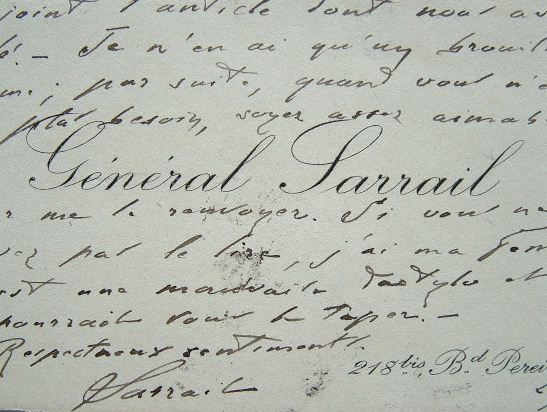 joint l'article dont nous av
é. — Je n'en ai qu'un brouil
me; par suite, quand vous n'e
plus besoin, soyez assez aimab
Général Sarrail
r me le renvoyer. Si vous ne
vez pas le lire, j'ai ma fem
est une mauvaise dactylo et
pourrait vous le taper. —
Respectueux sentiments.
Sarrail
218 bis, Bd. Perei